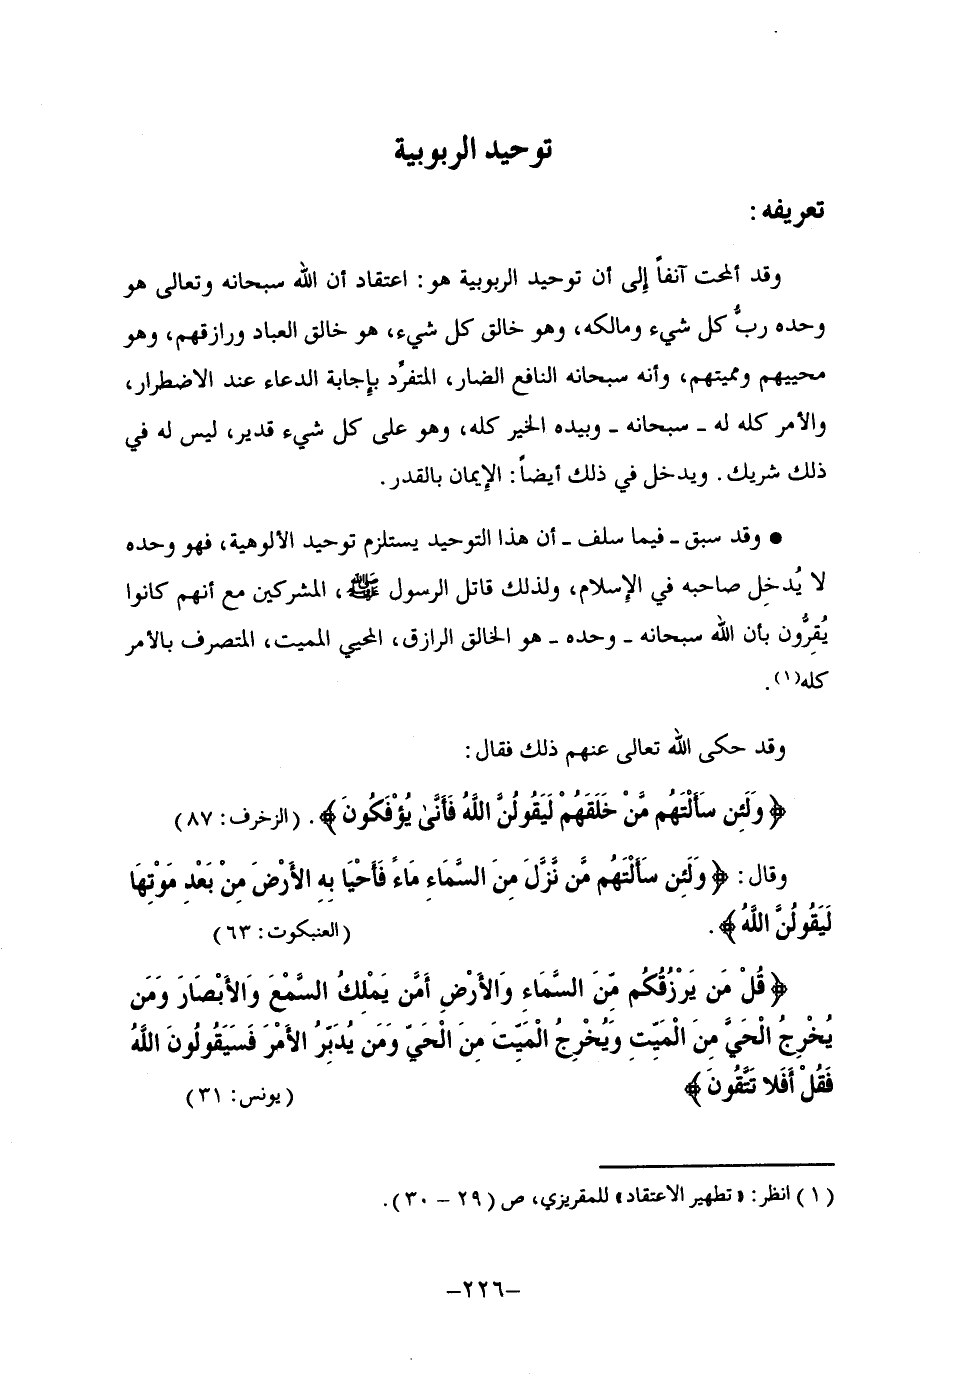 توحيد الربوبية
تعريفه :
وقد ألمحت آنفاً إلى أن توحيد الربوبية هو : اعتقاد أن الله سبحانه وتعالى هو
وحده ربُّ كل شيء ومالكه، وهو خالق كل شيء، هو خالق العباد ورازقهم، وهو
محييهم ومميتهم، وأنه سبحانه النافع الضار، المتفرِّد بإجابة الدعاء عند الاضطرار،
والأمر كله له ـ سبحانه ـ وبيده الخير كله، وهو على كل شيء قدير، ليس له في
ذلك شريك . ويدخل في ذلك أيضاً : الإيمان بالقدر .
● وقد سبق ـ فيما سلف ـ أن هذا التوحيد يستلزم توحيد الألوهية، فهو وحده
لا يُدخِل صاحبه في الإسلام، ولذلك قاتل الرسول ﷺ، المشركين مع أنهم كانوا
يُقِرُّون بأن الله سبحانه ـ وحده ـ هو الخالق الرازق، المحيي المميت، المتصرف بالأمر
كله(١) .
وقد حكى الله تعالى عنهم ذلك فقال :
﴿ وَلَئِن سَأَلْتَهُم مَّنْ خَلَقَهُمْ لَيَقُولُنَّ اللَّهُ فَأَنَّىٰ يُؤْفَكُونَ ﴾ . (الزخرف : ٨٧)
وقال : ﴿ وَلَئِن سَأَلْتَهُم مَّن نَّزَّلَ مِنَ السَّمَاءِ مَاءً فَأَحْيَا بِهِ الأَرْضَ مِنْ بَعْدِ مَوْتِهَا
لَيَقُولُنَّ اللَّهُ ﴾ . (العنبكوت : ٦٣)
﴿ قُلْ مَن يَرْزُقُكُم مِّنَ السَّمَاءِ وَالأَرْضِ أَمَّن يَمْلِكُ السَّمْعَ وَالأَبْصَارَ وَمَن
يُخْرِجُ الْحَيَّ مِنَ الْمَيِّتِ وَيُخْرِجُ الْمَيِّتَ مِنَ الْحَيِّ وَمَن يُدَبِّرُ الأَمْرَ فَسَيَقُولُونَ اللَّهُ
فَقُلْ أَفَلا تَتَّقُونَ ﴾ (يونس : ٣١)
(١) انظر : «تطهير الاعتقاد» للمقريزي، ص (٢٩ - ٣٠) .
-٢٢٦-